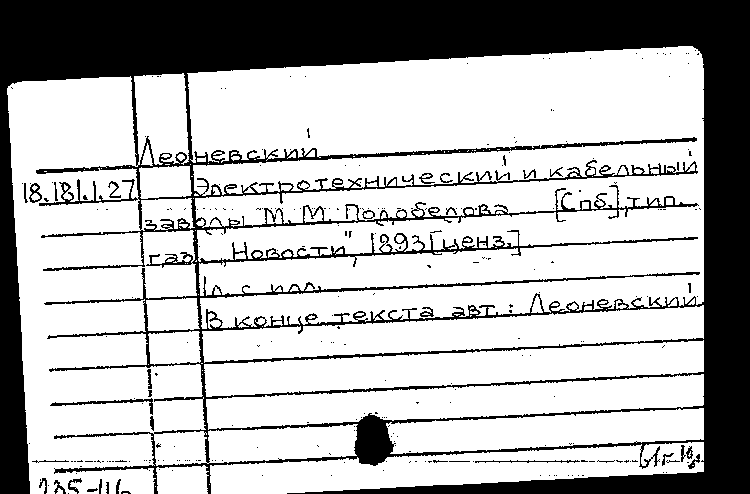 Леоневский
18.181.1.27 Электротехнический и кабельный
заводы М. М. Подобедова [Спб.], тип.
газ. „Новости", 1893 [ценз.]
1 л. с илл.
В конце текста авт.: Леоневский